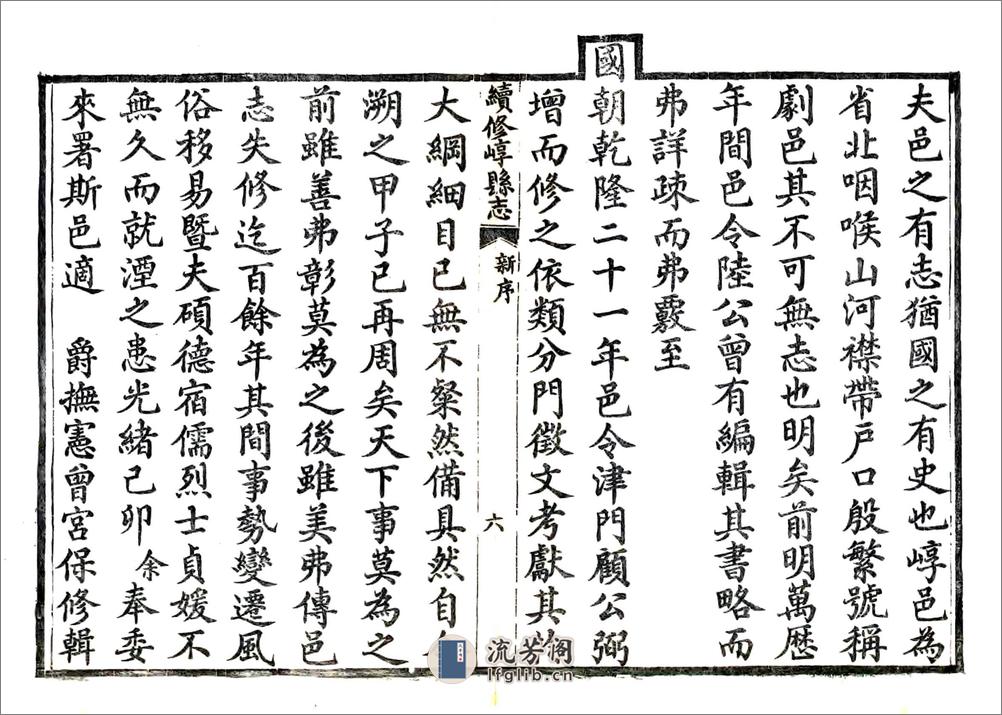 夫邑之有志猶國之有史也崞邑為
省北咽喉山河襟帶戶口殷繁號稱
劇邑其不可無志也明矣前明萬歷
年間邑令陸公曾有編輯其書略而
弗詳疎而弗覈至
國朝乾隆二十一年邑令津門顧公弼
增而修之依類分門徵文考獻其
續修崞縣志 新序 六
大綱細目已無不粲然備具然自
溯之甲子已再周矣天下事莫為之
前雖善弗彰莫為之後雖美弗傳邑
志失修迄百餘年其間事勢變遷風
俗移易暨夫碩德宿儒烈士貞媛不
無久而就湮之患光緒己卯余奉委
來署斯邑適 爵撫憲曾宮保修輯
流芳阁
lfglib.cn